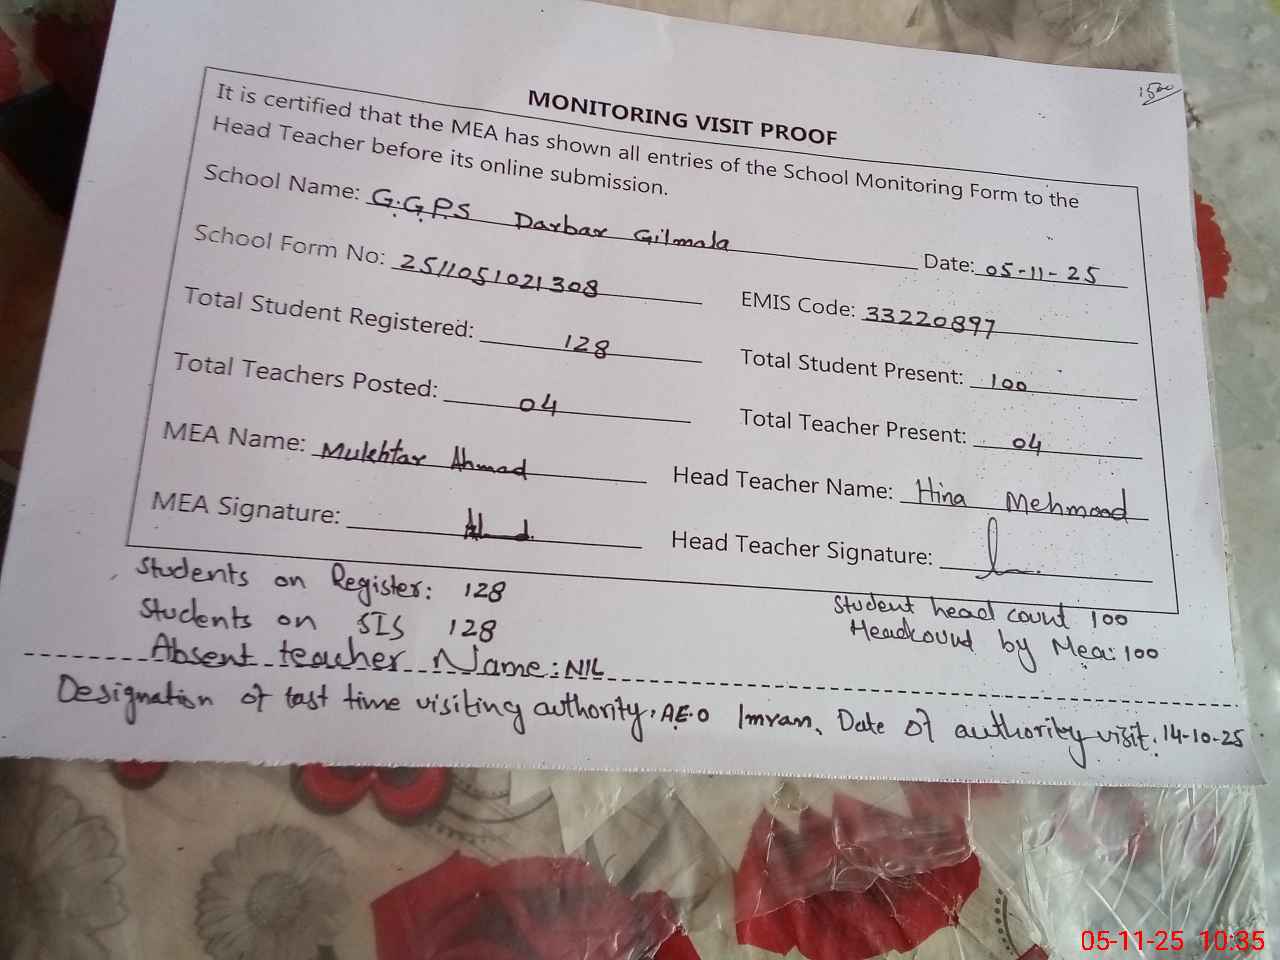 MONITORING VISIT PROOF
It is certified that the MEA has shown all entries of the School Monitoring Form to the
Head Teacher before its online submission.
School Name: G.G.P.S Darbar Gilmala
Date: 05-11-25
School Form No: 2511051021308
EMIS Code: 33220897
Total Student Registered: 128
Total Student Present: 100
Total Teachers Posted: 04
Total Teacher Present: 04
MEA Name: Mukhtar Ahmad
Head Teacher Name: Hina Mehmood
MEA Signature:
Head Teacher Signature:
Students on Register: 128
Student head count 100
Students on SIS 128
Headcound by Mea: 100
Absent teacher Name: NIL
Designation of last time visiting authority. AE.O Imran. Date of authority visit. 14-10-25
05-11-25 10:35